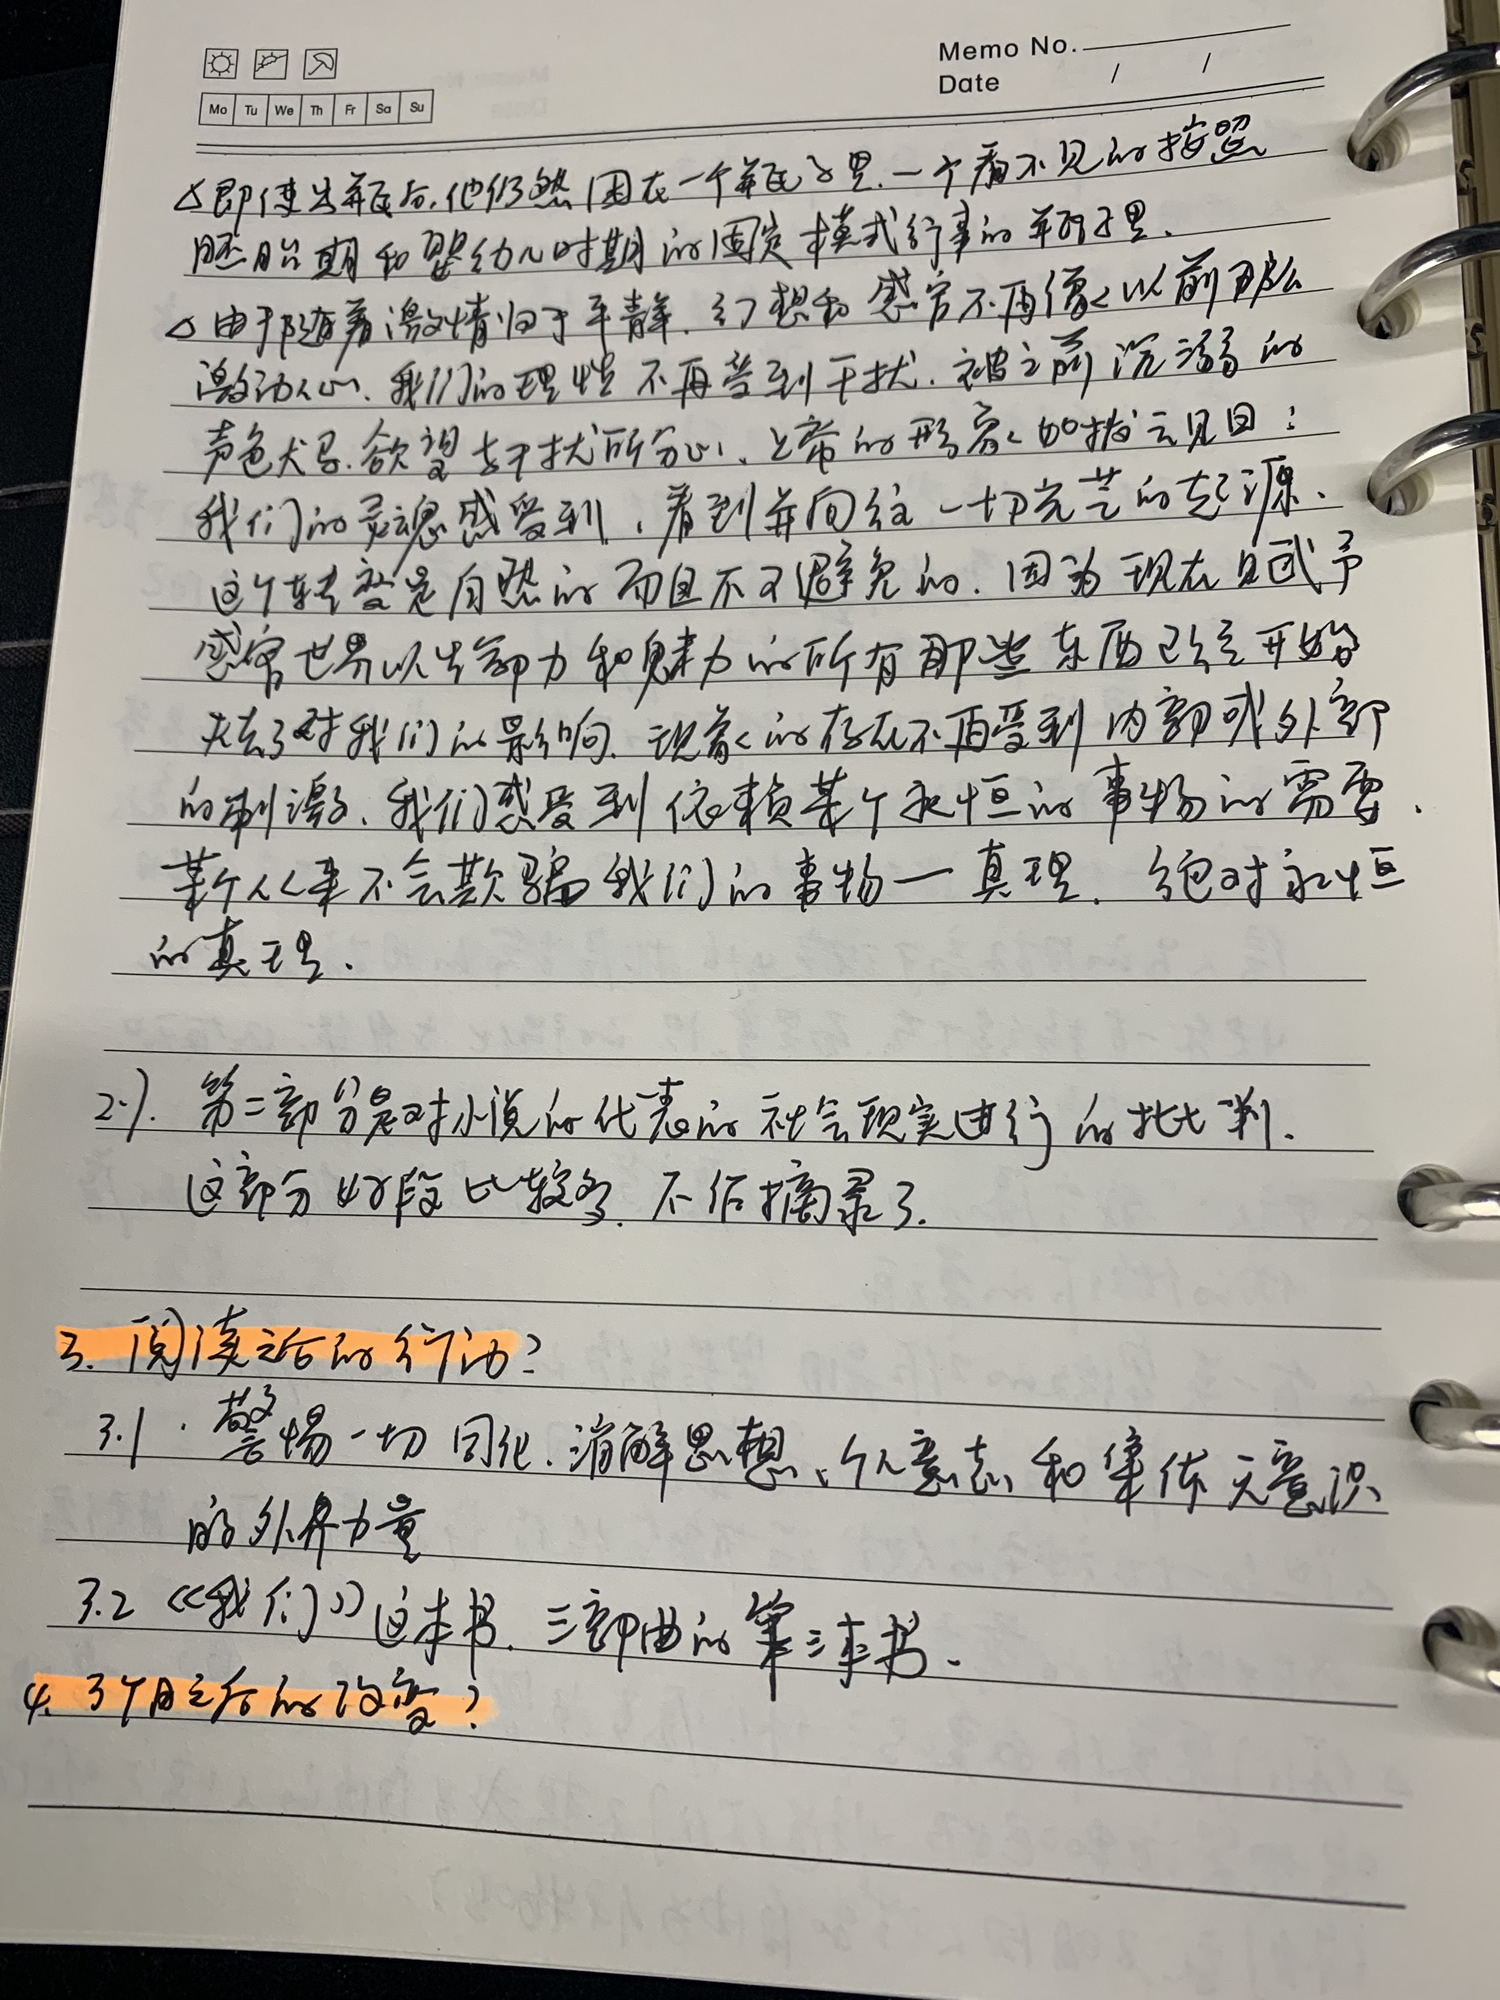 Memo No.
Date / /
Mo Tu We Th Fr Sa Su
△即使出瓶后,他仍然困在一个瓶子里.一个看不见的按照
胚胎期和婴幼儿时期的固定模式行事的瓶子里.
△由于随着激情归于平静.幻想和感官不再像以前那么
激动人心、我们的理性不再受到干扰.被之前沉溺的
声色犬马.欲望与干扰所分心、上帝的形象如拨云见日:
我们的灵魂感受到、看到并向往一切光芒的起源.
这个转变是自然的而且不可避免的.因为现在且赋予
感官世界以生命力和魅力的所有那些东西已经开始
失去了对我们的影响.现象的存在不再受到内部或外部
的刺激、我们感受到依赖某个永恒的事物的需要.
某个从来不会欺骗我们的事物一真理.绝对永恒
的真理.
2.).第二部分是对小说的代表的社会现实进行的批判.
这部分好段比较多.不作摘录了.
3.阅读之后的行动?
3.1.警惕一切同化.消解思想、个人意志和集体无意识
的外界力量
3.2《我们》这本书.三部曲的第三本书.
4.3个月之后的改变?